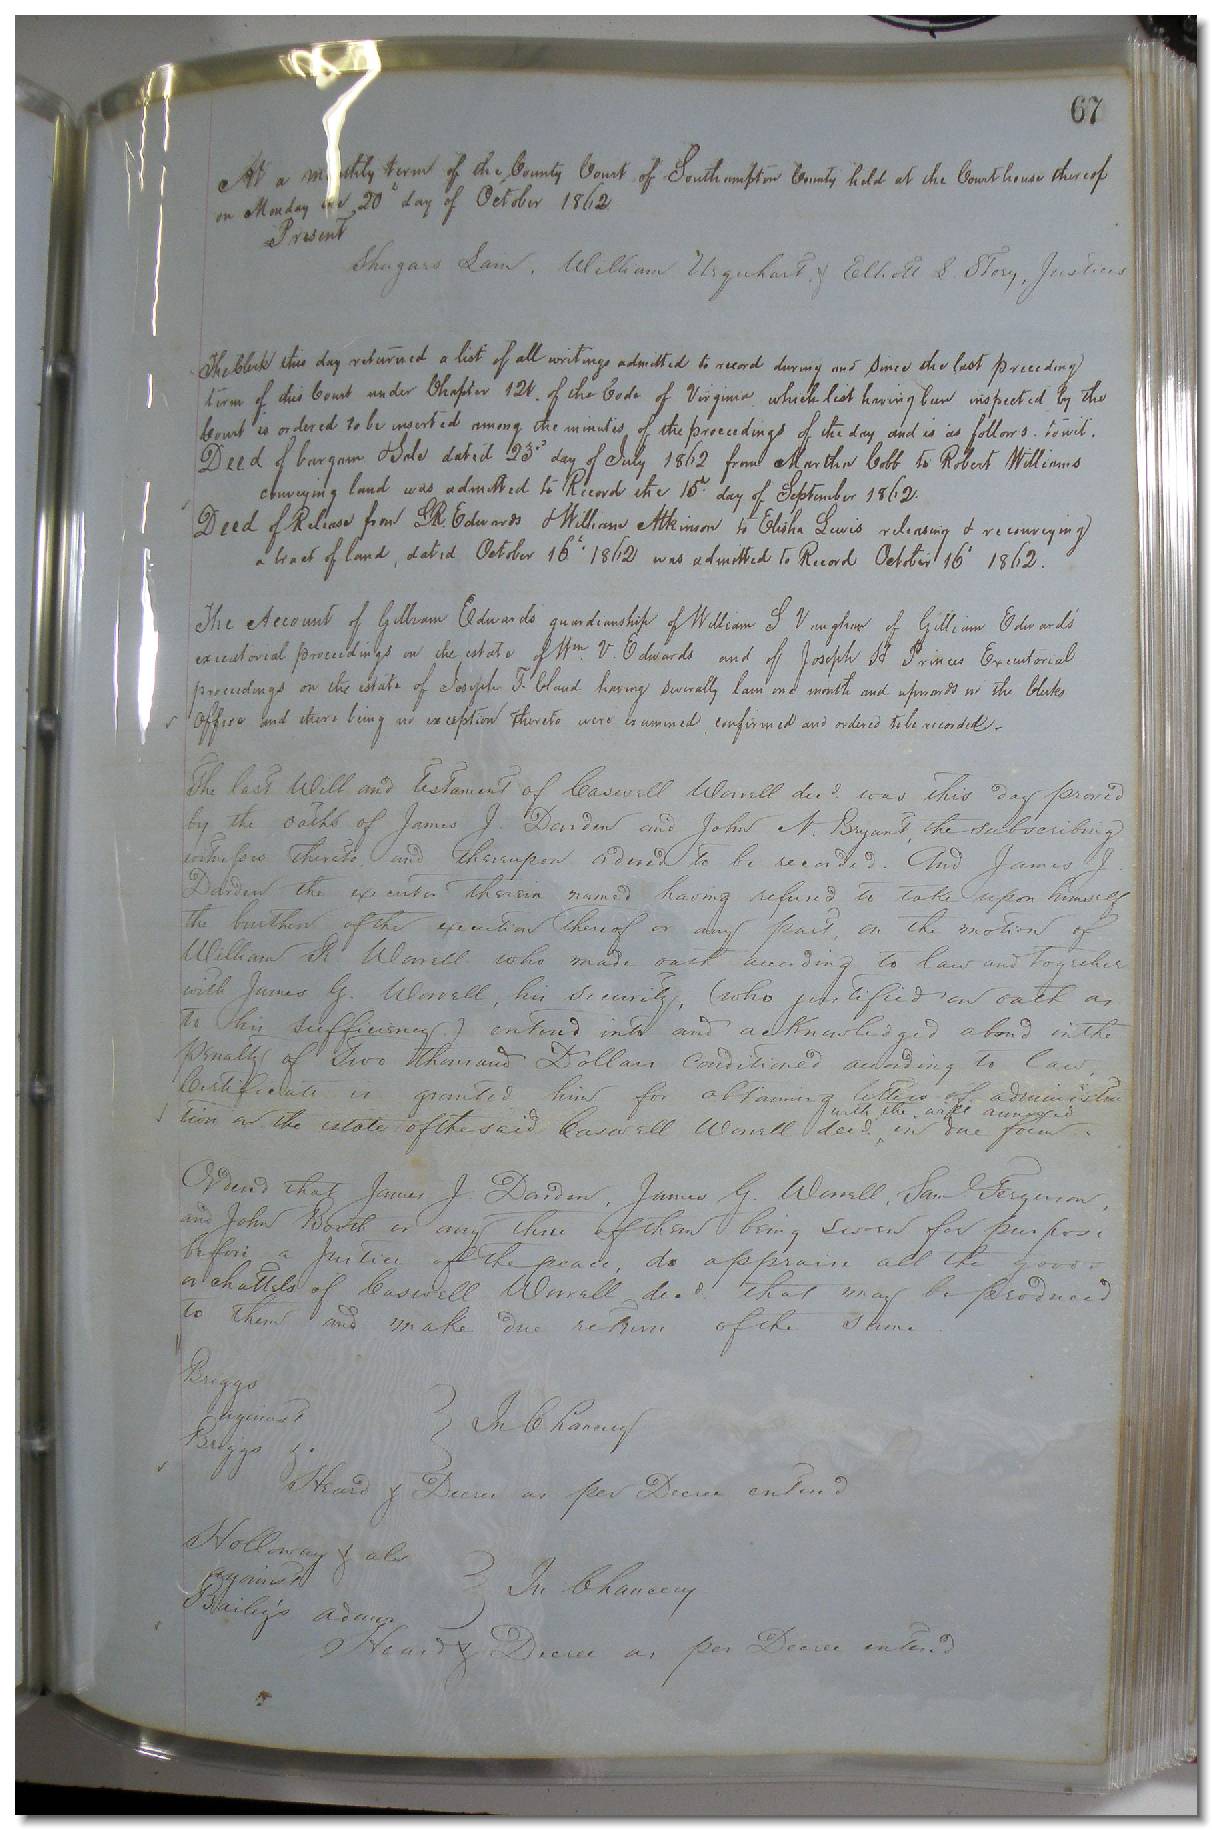 67
At a monthly term of the County Court of Southampton County held at the Courthouse thereof
on Monday the 20th day of October 1862
Present
Shugars Lain, William Urquhart, & Elliott L. Story, Justices
The Clerk this day returned a list of all writings admitted to record during and since the last preceding
term of this Court under Chapter 121. of the Code of Virginia, which list having been inspected by the
Court is ordered to be inserted among the minutes of the proceedings of the day and is as follows. towit.
Deed of bargain & Sale dated 23d day of July 1862 from Martha Cobb to Robert Williams
conveying land was admitted to Record the 15th day of September 1862.
Deed of Release from G.R. Edwards & William Atkinson to Elisha Lewis releasing & reconveying
a tract of land, dated October 16th 1862 was admitted to Record October 16th 1862.
The Account of Gilliam Edwards guardianship of William S Vaughan of Gilliam Edwards'
executorial proceedings on the estate of Wm. V. Edwards and of Joseph H Princes Executorial
proceedings on the estate of Joseph T. Claud having severally lain one month and upwards in the Clerks
Office and there being no exception thereto were examined confirmed and ordered to be recorded.
The last Will and testament of Caswell Worrell decd. was this day proved
by the oaths of James J. Darden and John N. Bryant, the subscribing
witnesses thereto, and thereupon ordered to be recorded. And James J.
Darden the executor therein named having refused to take upon himself
the burthen of the execution thereof or any part, on the motion of
William R Worrell who made oath according to law and together
with James G. Worrell, his security, (who justified on oath as
to his sufficiency.) entered into and acknowledged a bond in the
penalty of two thousand Dollars conditioned according to law,
Certificate is granted him for obtaining letters of administra
with the will annexed
tion on the estate of the said Caswell Worrell decd, in due form.
Ordered that James J. Darden, James G. Worrell, Saml Ferguson,
and John Booth or any three of them being sworn for purpose
before a Justice of the peace, do appraise all the goods
or chattels of Caswell Worrell decd. that may be produced
to them and make due return of the same.
Briggs
against
Briggs &c.
} In Chancery
Heard & Decree as per Decree entered
Holloway & als
against
Bailey's admr
} In Chancery
Heard & Decree as per Decree entered